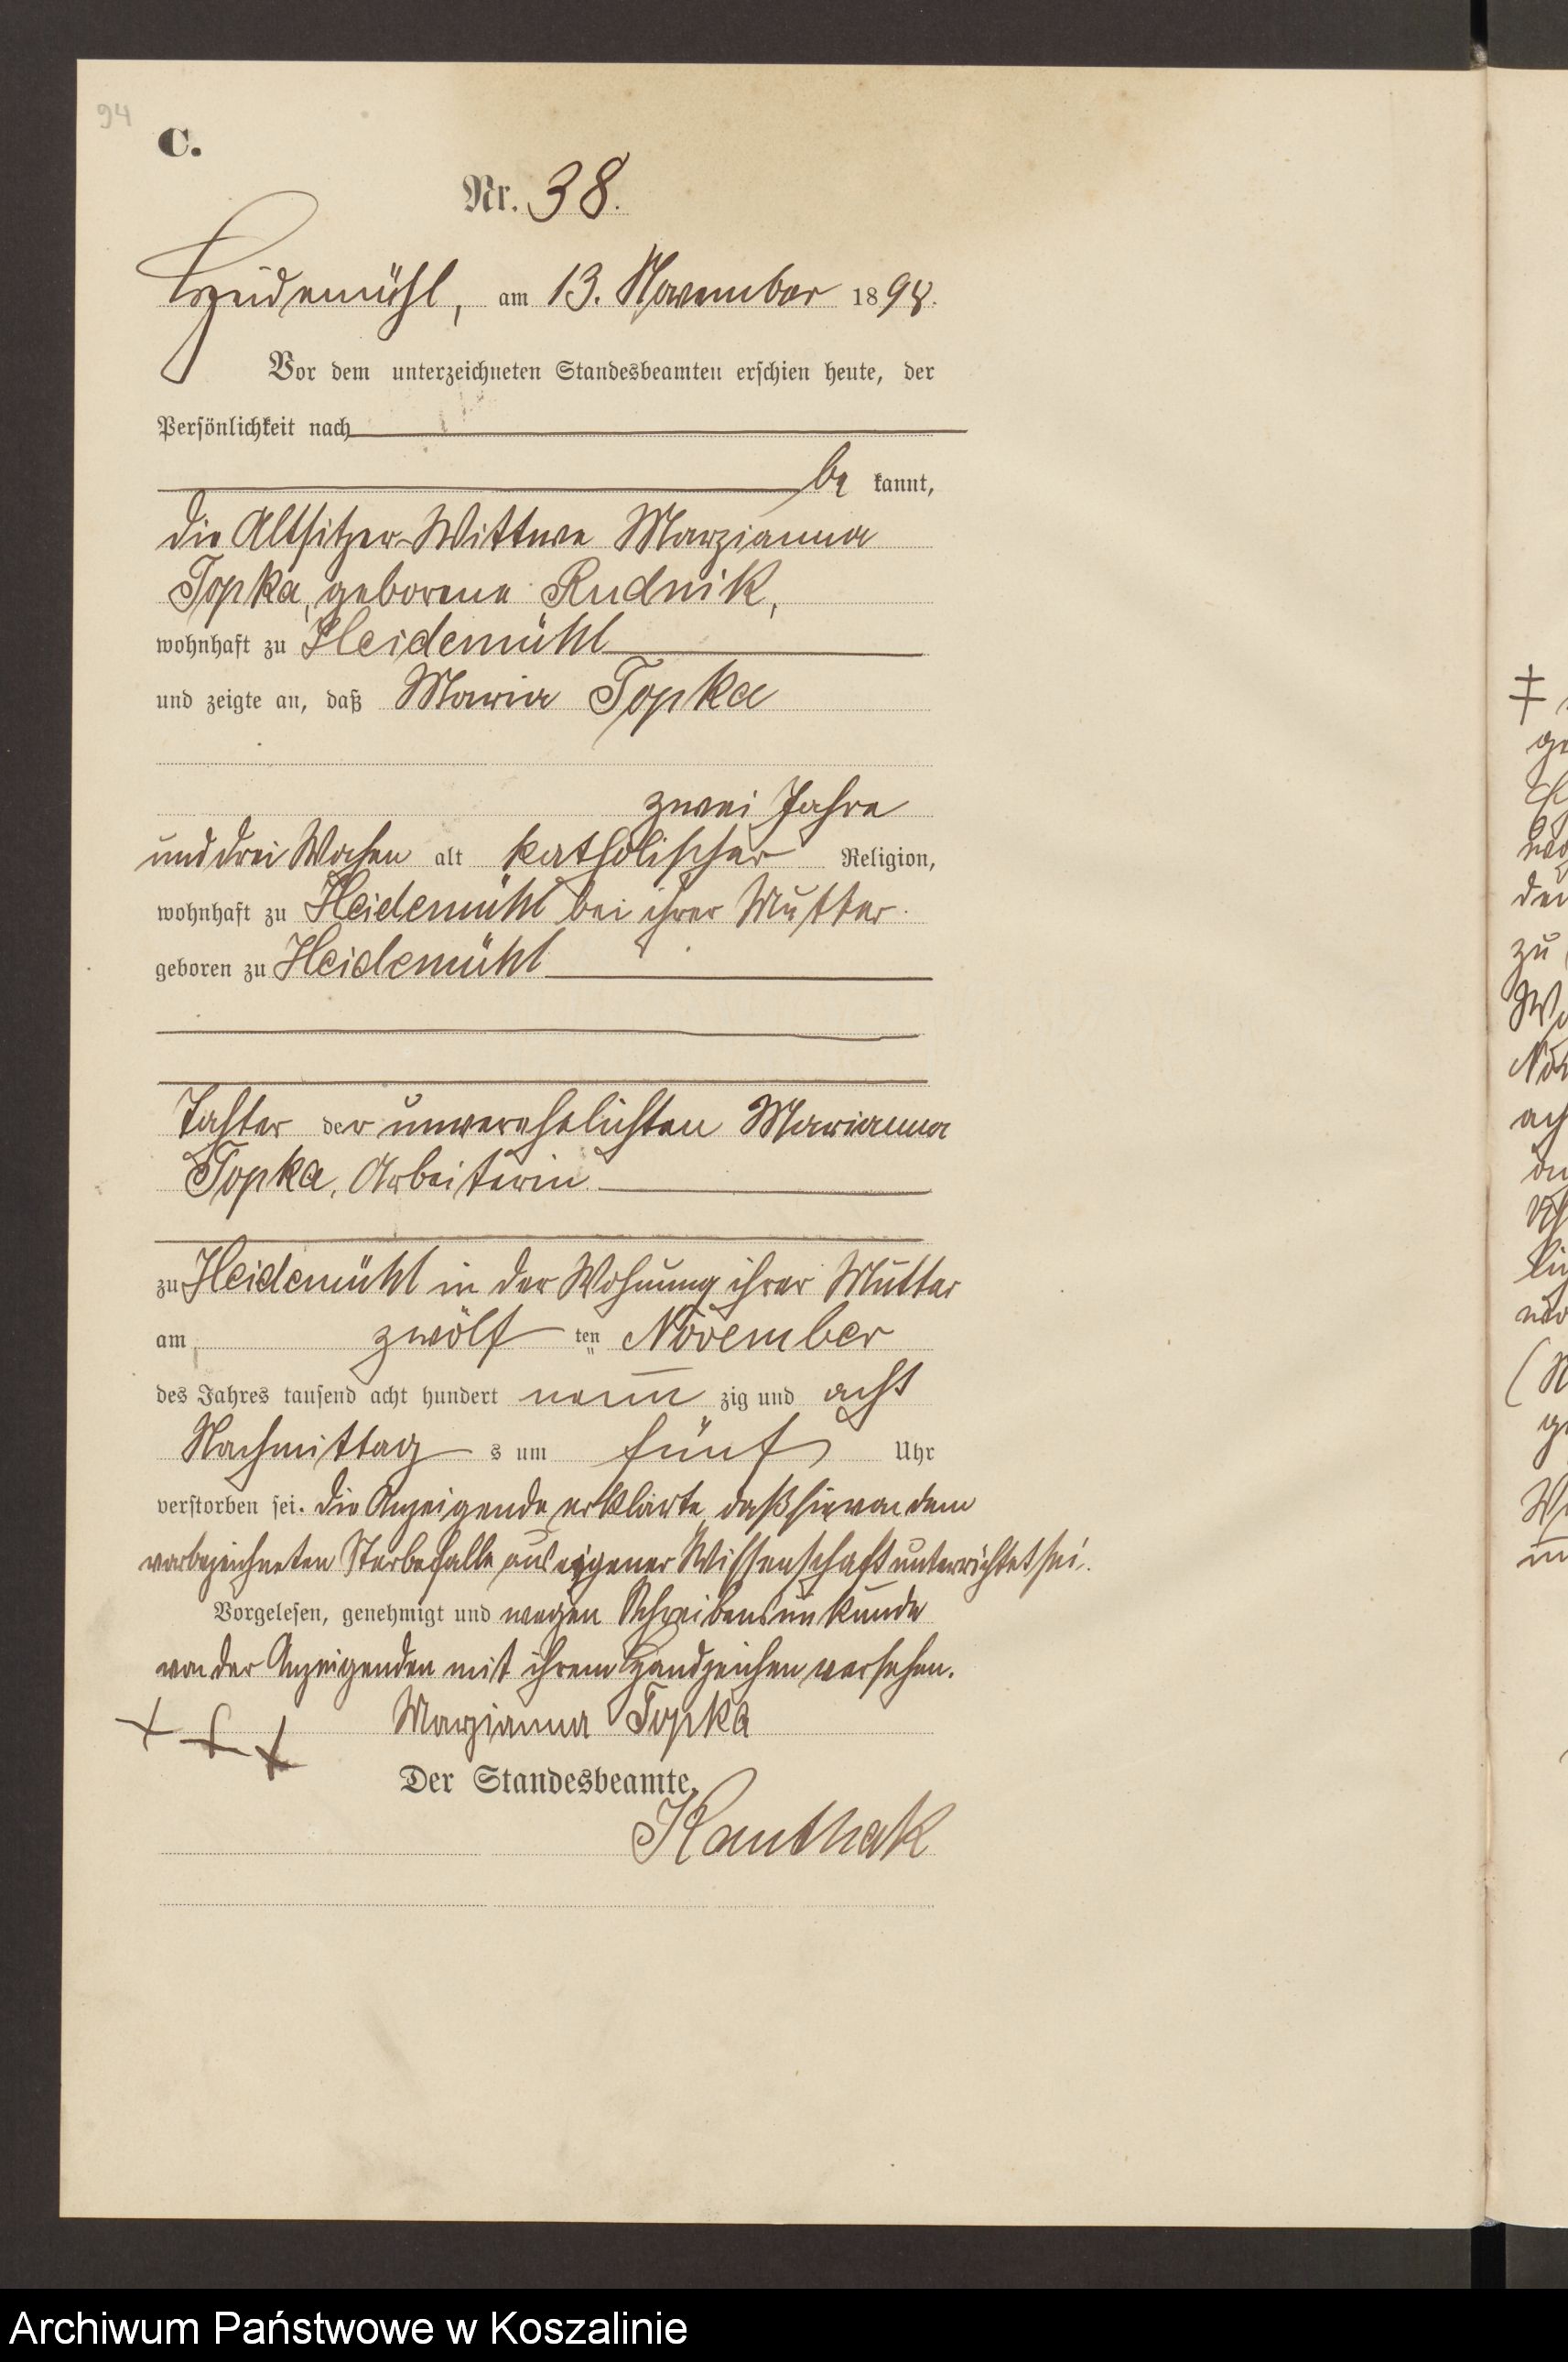 94
C.
Nr. 38.
Heidemühl, am 13. November 1898.
Vor dem unterzeichneten Standesbeamten erschien heute, der
Persönlichkeit nach
be kannt,
die Altsitzer-Wittwe Marzianna
Topka, geborene Rudnik,
wohnhaft zu Heidemühl
und zeigte an, daß Maria Topka
zwei Jahre
und drei Wochen alt katholischer Religion,
wohnhaft zu Heidemühl bei ihrer Mutter.
geboren zu Heidemühl
Tochter der unverehelichten Marianna
Topka, Arbeiterin
zu Heidemühl in der Wohnung ihrer Mutter
am zwölf ten November
des Jahres tausend acht hundert neun zig und acht
Nachmittag s um fünf Uhr
verstorben sei. Die Anzeigende erklärte, daß sie von dem
vorbezeichneten Sterbefalle aus eigener Wissenschaft unterrichtet sei.
Vorgelesen, genehmigt und wegen Schreibensunkunde
von der Anzeigenden mit ihrem Handzeichen versehen.
+ + + Marzianna Topka
Der Standesbeamte.
Kanthak
Archiwum Państwowe w Koszalinie